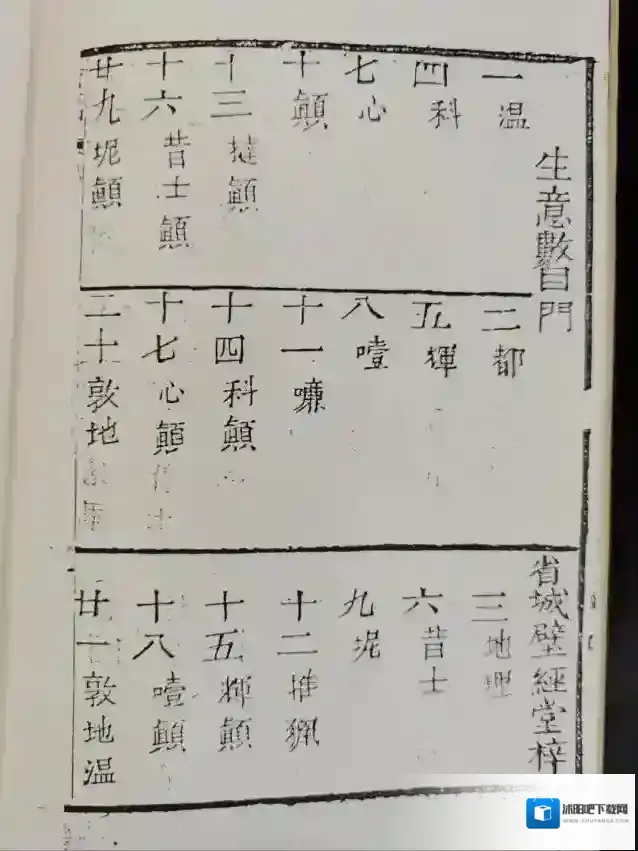 生意數目門
省城壁經堂梓
一温
二都
三地理
四科
五輝
六昔士
七心
八噎
九坭
十顛
十一嗛
十二推猟
十三撻顛
十四科顛
十五輝顛
十六昔士顛
十七心顛
十八噎顛
廿九坭顛
二十敦地
廿一敦地温
沭阳吧下载网